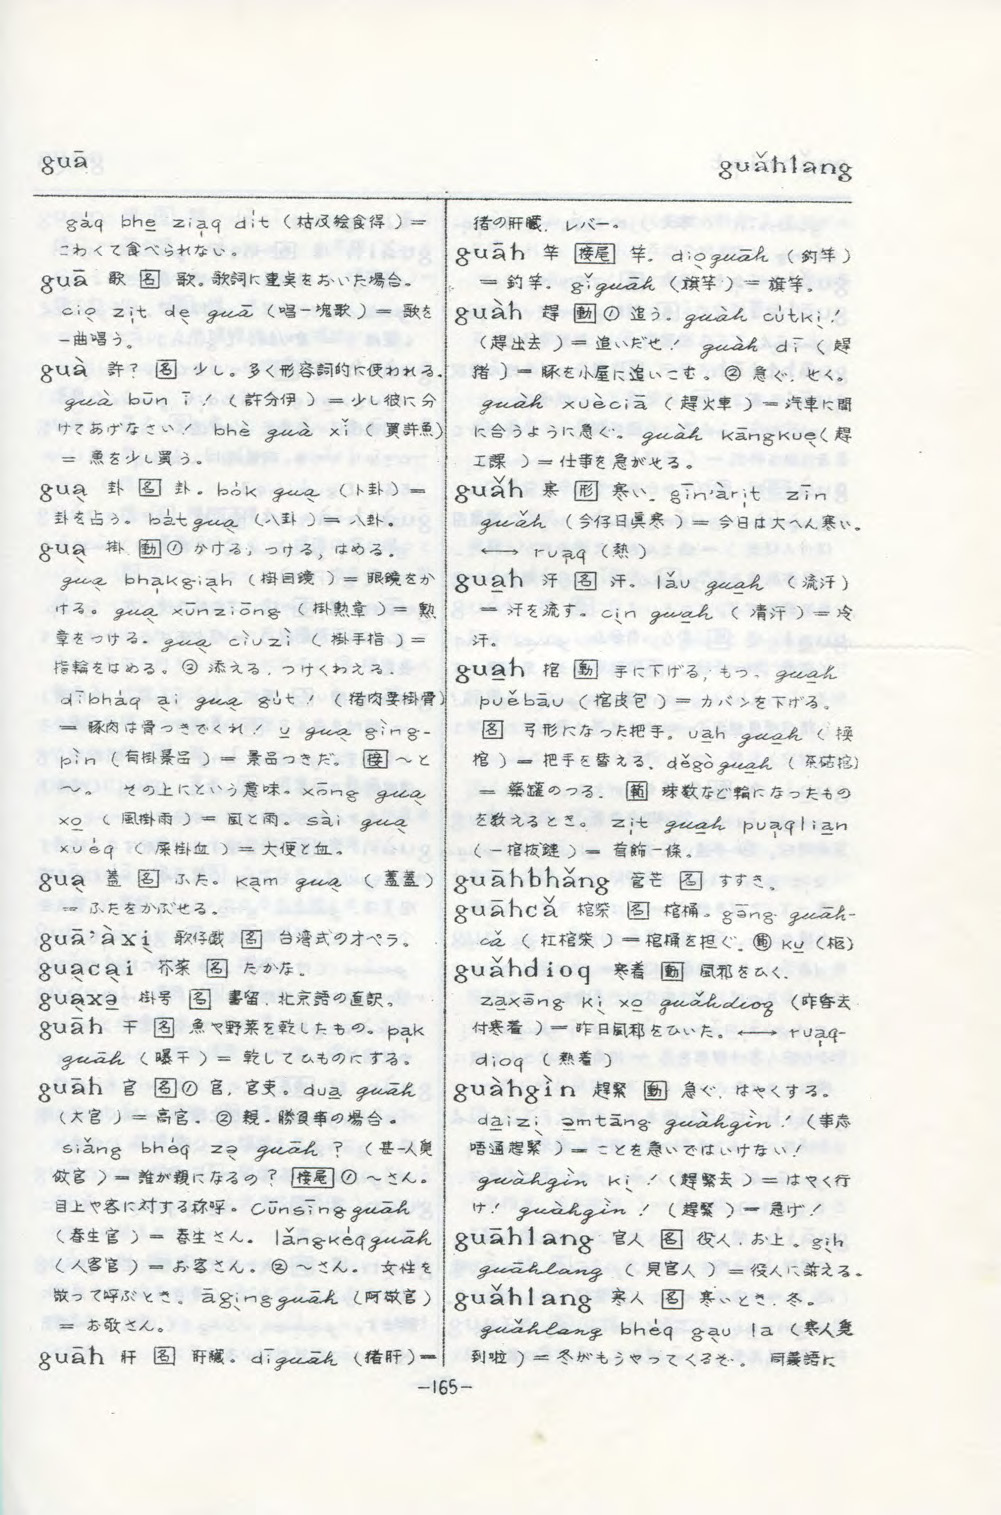 guā
guǎhlang
gàq bhe ziaq dit (枯及絵食得) =
こわくて食べられない。
guā 歌 [名] 歌。歌詞に重臭をおいた場合。
cio zit de guā (唱一塊歌) = 歌を
一曲唱う。
guà 許? [名] 少し。多く形容詞的に使われる。
guà būn ī! (許分伊) = 少し彼に分
けてあげなさい! bhè guà xǐ (買許魚)
= 魚を少し買う。
gua 卦 [名] 卦。bok gua (卜卦) =
卦を占う。bat gua (八卦) = 八卦。
gua 掛 [動] ① かける, つける, はめる。
gua bhakgiah (掛目鏡) = 眼鏡をか
ける。gua xūnziōng (掛勲章) = 勲
章をつける。gua ciuzì (掛手指) =
指輪をはめる。② 添える, つけくわえる.
dībhàq ai gua gut! (猪肉要掛骨)
= 豚肉は骨つきでくれ! u gua gìng-
pìn (有掛景品) = 景品つきだ。[接] ~と
~。 その上にという意味。xōng gua
xo (風掛雨) = 風と雨。sài gua
xuéq (屎掛血) = 大便と血。
gua 蓋 [名] ふた。kam gua (蓋蓋)
= ふたをかぶせる。
guā'àxì 歌仔戯 [名] 台湾式のオペラ。
guacai 芥菜 [名] たかな。
guaxə 掛号 [名] 書留, 北京語の直訳。
guāh 干 [名] 魚や野菜を乾したもの。pak
guāh (曝干) = 乾してひものにする。
guāh 官 [名] ① 官, 官吏. dua guāh
(大官) = 高官. ② 親・勝負事の場合。
siǎng bhéq zə guāh? (甚一人奥
做官) = 誰が親になるの? [接尾] ① ~さん。
目上や客に対する称呼。Cūnsīng guāh
(春生官) = 春生さん。lǎngkéqguāh
(人客官) = お客さん。② ~さん。女性を
敬って呼ぶとき。āgìng guāh (阿敬官)
= お敬さん。
guāh 肝 [名] 肝臓。dīguāh (猪肝) =
猪の肝臓, レバー。
guāh 竿 [接尾] 竿. diоguāh (釣竿)
= 釣竿. gǐguāh (旗竿) = 旗竿。
guàh 趕 [動] ① 追う。guàh cutki!
(趕出去) = 追いだせ! guàh dī (趕
猪) = 豚を小屋に追いこむ。② 急ぐ, せく。
guàh xuècia (趕火車) = 汽車に間
に合うように急ぐ。guàh kāngkue (趕
工課) = 仕事を急がせる。
guǎh 寒 [形] 寒い. gīn'àrit zīn
guǎh (今仔日真寒) = 今日は大へん寒い。
←→ ruaq (熱)
guah 汗 [名] 汗. lǎu guah (流汗)
= 汗を流す。cin guah (清汗) = 冷
汗.
guah 棺 [動] 手に下げる, もつ. guah
puěbāu (棺皮包) = カバンを下げる。
[名] 弓形になった把手。uah guah (換
棺) = 把手を替える. děgò guah (茶砧棺)
= 薬罐のつる. [助] 珠数など輪になったもの
を数えるとき。zit guah puaqlian
(一棺抜鏈) = 首飾一條。
guāhbhǎng 菅芒 [名] すすき。
guāhcǎ 棺柴 [名] 棺桶。gāng guāh-
cǎ (扛棺柴) = 棺桶を担ぐ. 同 ku (柩)
guǎhdioq 寒着 [動] 風邪をひく.
zaxāng ki xo guǎhdioq (昨昏去
付寒着) = 昨日風邪をひいた。←→ ruaq-
dioq (熱着)
guàhgìn 趕緊 [動] 急ぐ, はやくする。
daizi əmtāng guàhgìn! (事志
唔通趕緊) = ことを急いではいけない!
guàhgìn ki! (趕緊去) = はやく行
け! guàhgìn! (趕緊) = 急げ!
guāhlang 官人 [名] 役人, お上。gih
guāhlang (見官人) = 役人に訴える。
guǎhlang 寒人 [名] 寒いとき, 冬。
guǎhlang bhéq gau la (寒人奥
到啦) = 冬がもうやってくるぞ。 同義語に
-165-